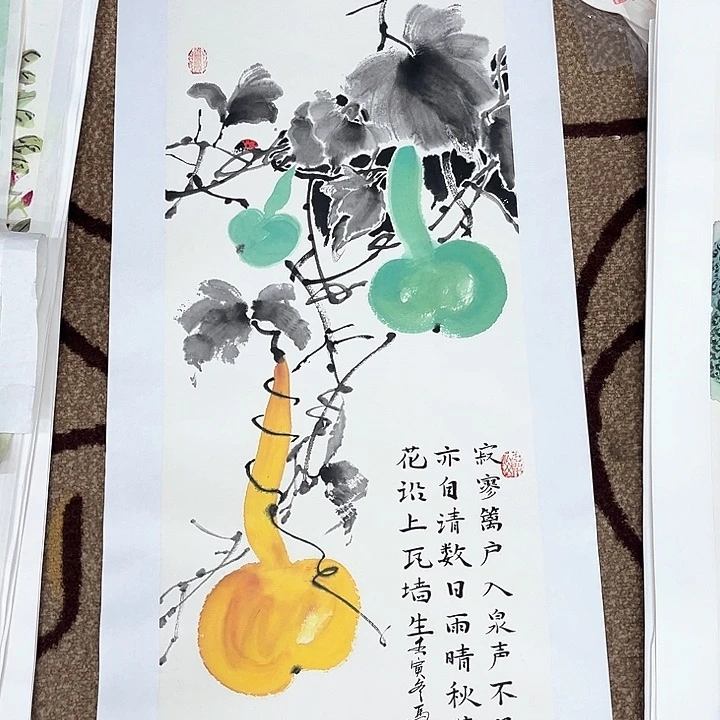 寂寥篱户入泉声不
亦自清数日雨晴秋
花沿上瓦墙生
壬寅年